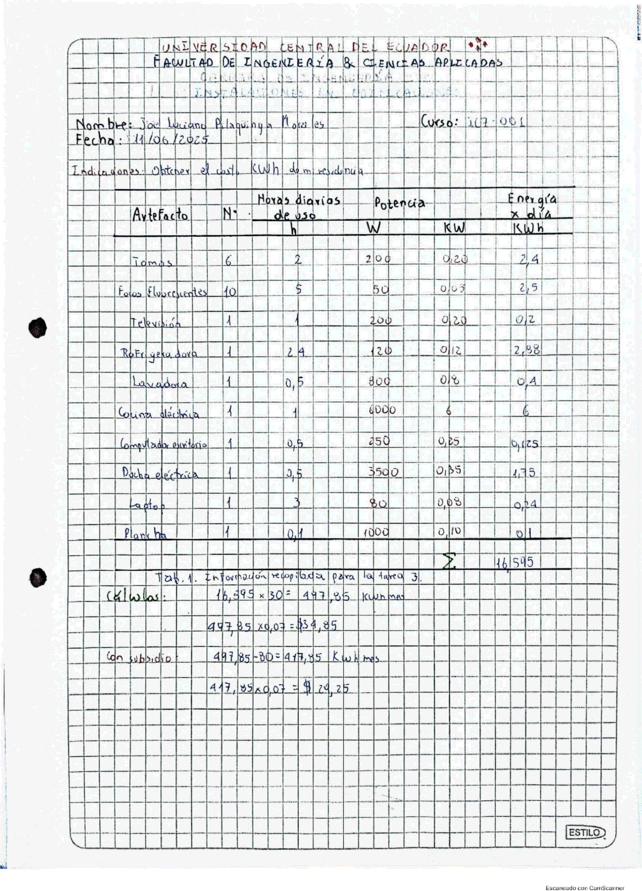 UNIVERSIDAD CENTRAL DEL ECUADOR
FACULTAD DE INGENIERÍA & CIENCIAS APLICADAS
Nombre: José Luciano Pilaquinga Morales Curso: IC7-001
Fecha: 11/06/2025
Indicaciones: Obtener el costo KWh de mi residencia
Artefacto N° Horas diarias de uso Potencia Energía x día
h W KW KWh
Tomas 6 2 200 0,20 2,4
Focos Fluorescentes 10 5 50 0,05 2,5
Televisión 1 1 200 0,20 0,2
Refrigeradora 1 24 120 0,12 2,88
Lavadora 1 0,5 800 0,8 0,4
Cocina eléctrica 1 1 6000 6 6
Computador escritorio 1 0,5 250 0,25 0,125
Ducha eléctrica 1 0,5 3500 0,35 1,75
Laptop 1 3 80 0,08 0,24
Plancha 1 0,1 1000 0,10 0,1
Σ 16,595
Tab. 1. Información recopilada para la tarea 3.
Cálculos: 16,595 × 30 = 497,85 KWh mes
497,85 x 0,07 = $34,85
Con subsidio: 497,85-80 = 417,85 KWh mes
417,85 x 0,07 = $ 29,25
ESTILO
Escaneado con CamScanner